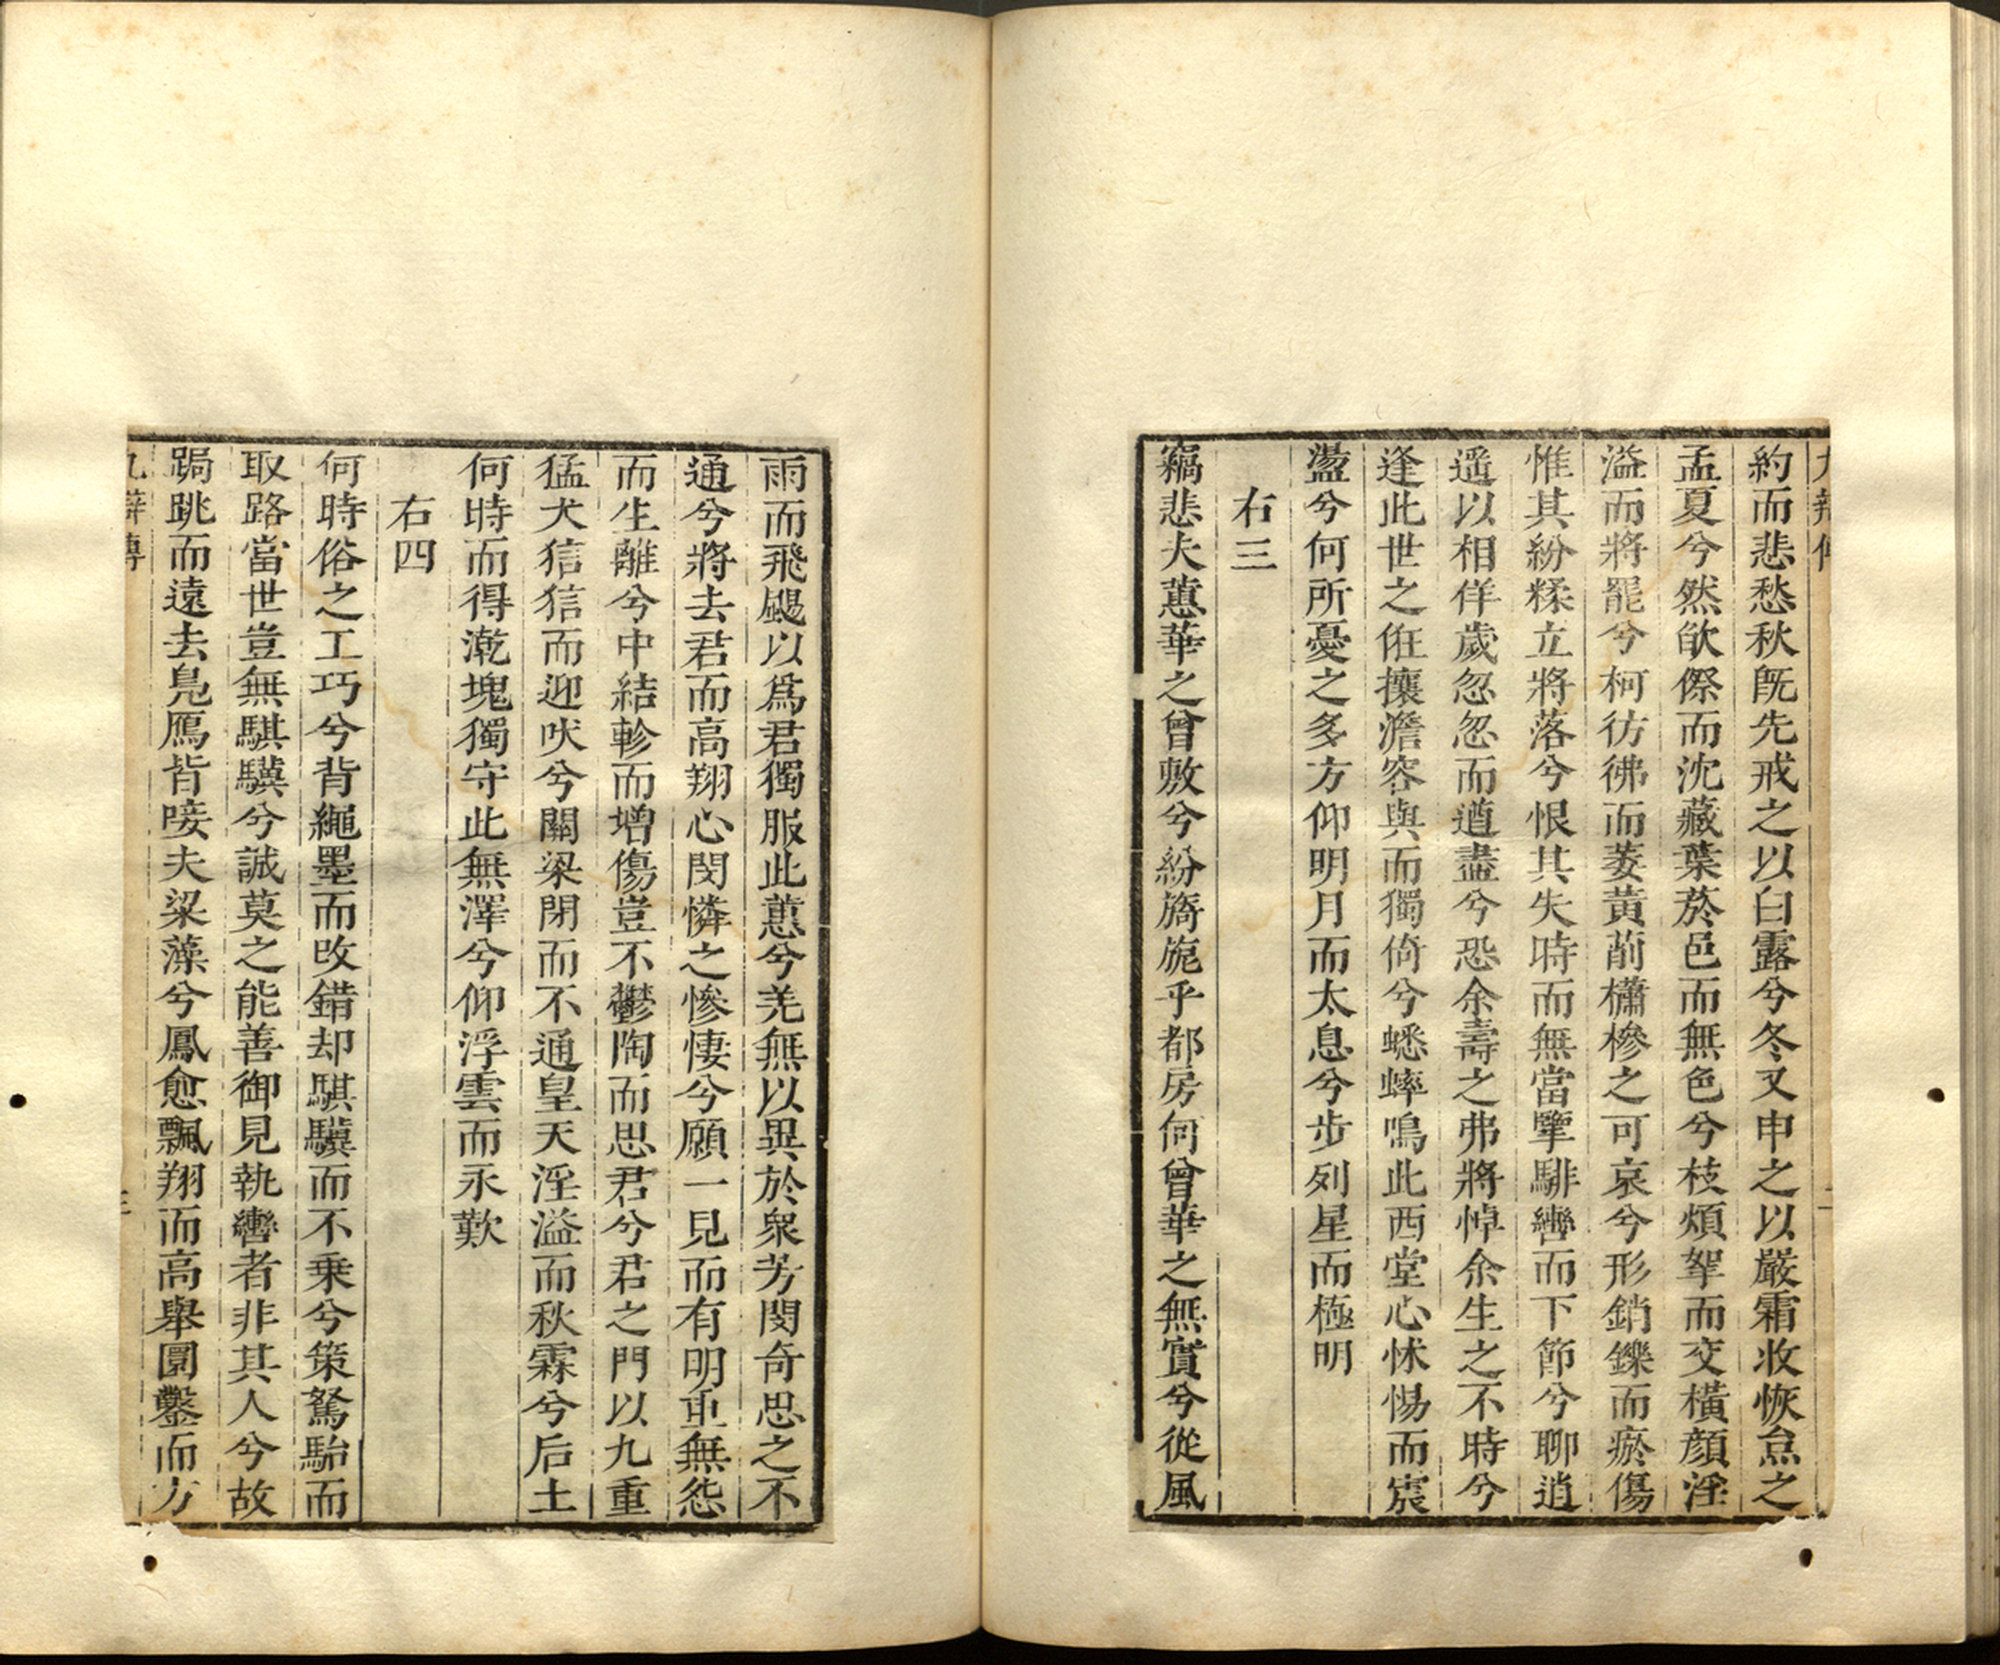 九辯傳 二
約而悲愁秋既先戒之以白露兮冬又申之以嚴霜收恢炱之
孟夏兮然欿傺而沈藏葉菸邑而無色兮枝煩挐而交橫顏淫
溢而將罷兮柯彷彿而萎黃萷櫹槮之可哀兮形銷鑠而瘀傷
惟其紛糅立將落兮恨其失時而無當擥騑轡而下節兮聊逍
遥以相佯歲忽忽而遒盡兮恐余壽之弗將悼余生之不時兮
逢此世之俇攘澹容與而獨倚兮蟋蟀鳴此西堂心怵惕而宸
盪兮何所憂之多方仰明月而太息兮步列星而極明
右三
竊悲夫蕙華之曾敷兮紛旖旎乎都房何曾華之無實兮從風
雨而飛颺以爲君獨服此蕙兮羌無以異於衆芳閔奇思之不
通兮將去君而高翔心閔憐之慘悽兮願一見而有明重無怨
而生離兮中結軫而增傷豈不鬱陶而思君兮君之門以九重
猛犬狺狺而迎吠兮關梁閉而不通皇天淫溢而秋霖兮后土
何時而得漧塊獨守此無澤兮仰浮雲而永歎
右四
何時俗之工巧兮背繩墨而改錯却騏驥而不乗兮策駑駘而
取路當世豈無騏驥兮誠莫之能善御見執轡者非其人兮故
跼跳而遠去鳧鴈皆唼夫粱藻兮鳳愈飄翔而高舉圜鑿而方
九辯傳 三